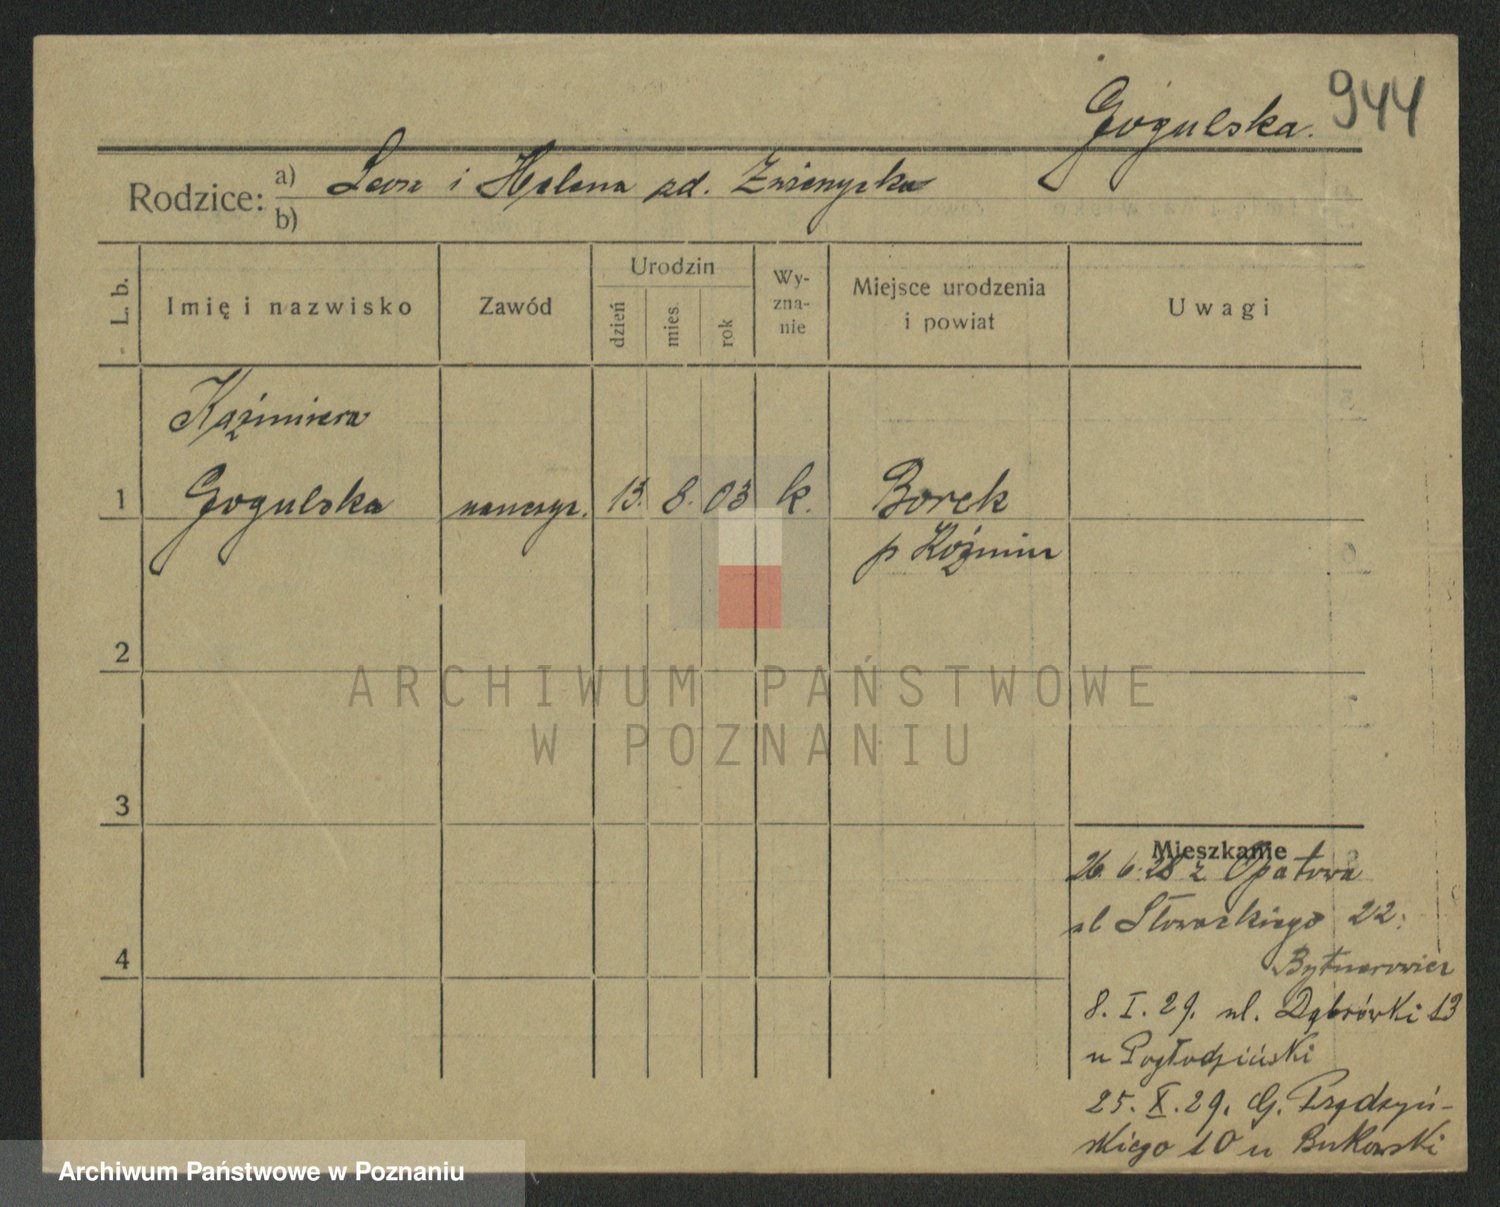 Gogulska. 944
Rodzice: a) Leon i Helena zd. Zwierzycka
b)
L. b.
Imię i nazwisko
Zawód
Urodzin
dzień
mies.
rok
Wy-
zna-
nie
Miejsce urodzenia
i powiat
Uwagi
Kaźmiera
1 Gogulska nauczyc. 13. 8. 03 k. Borek
p Koźmin
2
3
4
Mieszkanie
26. 6. 28 z Opatowa
ul Słowackiego 22.
Bytnerowicz
8. I. 29. ul. Dąbrówki 13
u Pogłodziński
25. X. 29. G. Prądzyń-
skiego 10 u Bukowski
ARCHIWUM PAŃSTWOWE
W POZNANIU
Archiwum Państwowe w Poznaniu